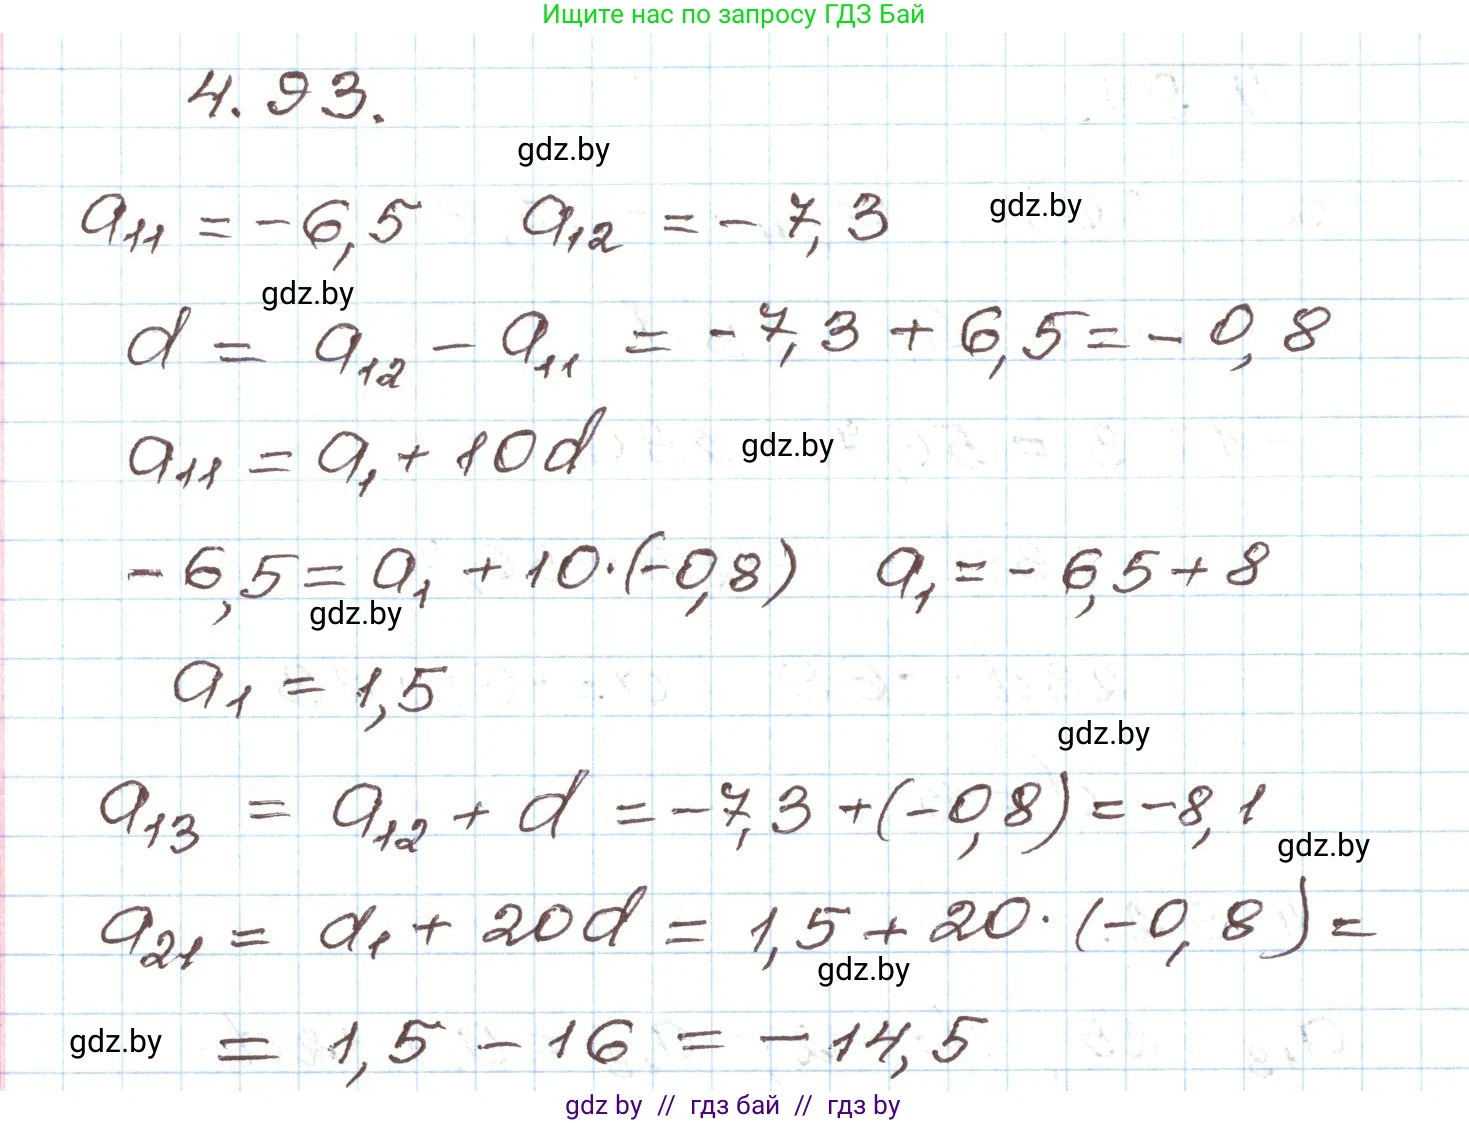 Ищите нас по запросу ГДЗ Бай
4.93.
gdz.by
a₁₁ = -6,5 a₁₂ = -7,3 gdz.by
gdz.by
d = a₁₂ - a₁₁ = -7,3 + 6,5 = -0,8
a₁₁ = a₁ + 10d gdz.by
-6,5 = a₁ + 10·(-0,8) a₁ = -6,5 + 8
gdz.by
a₁ = 1,5
gdz.by
a₁₃ = a₁₂ + d = -7,3 + (-0,8) = -8,1
gdz.by
a₂₁ = d₁ + 20d = 1,5 + 20·(-0,8) =
gdz.by
gdz.by = 1,5 - 16 = -14,5
gdz by // гдз бай // гдз by